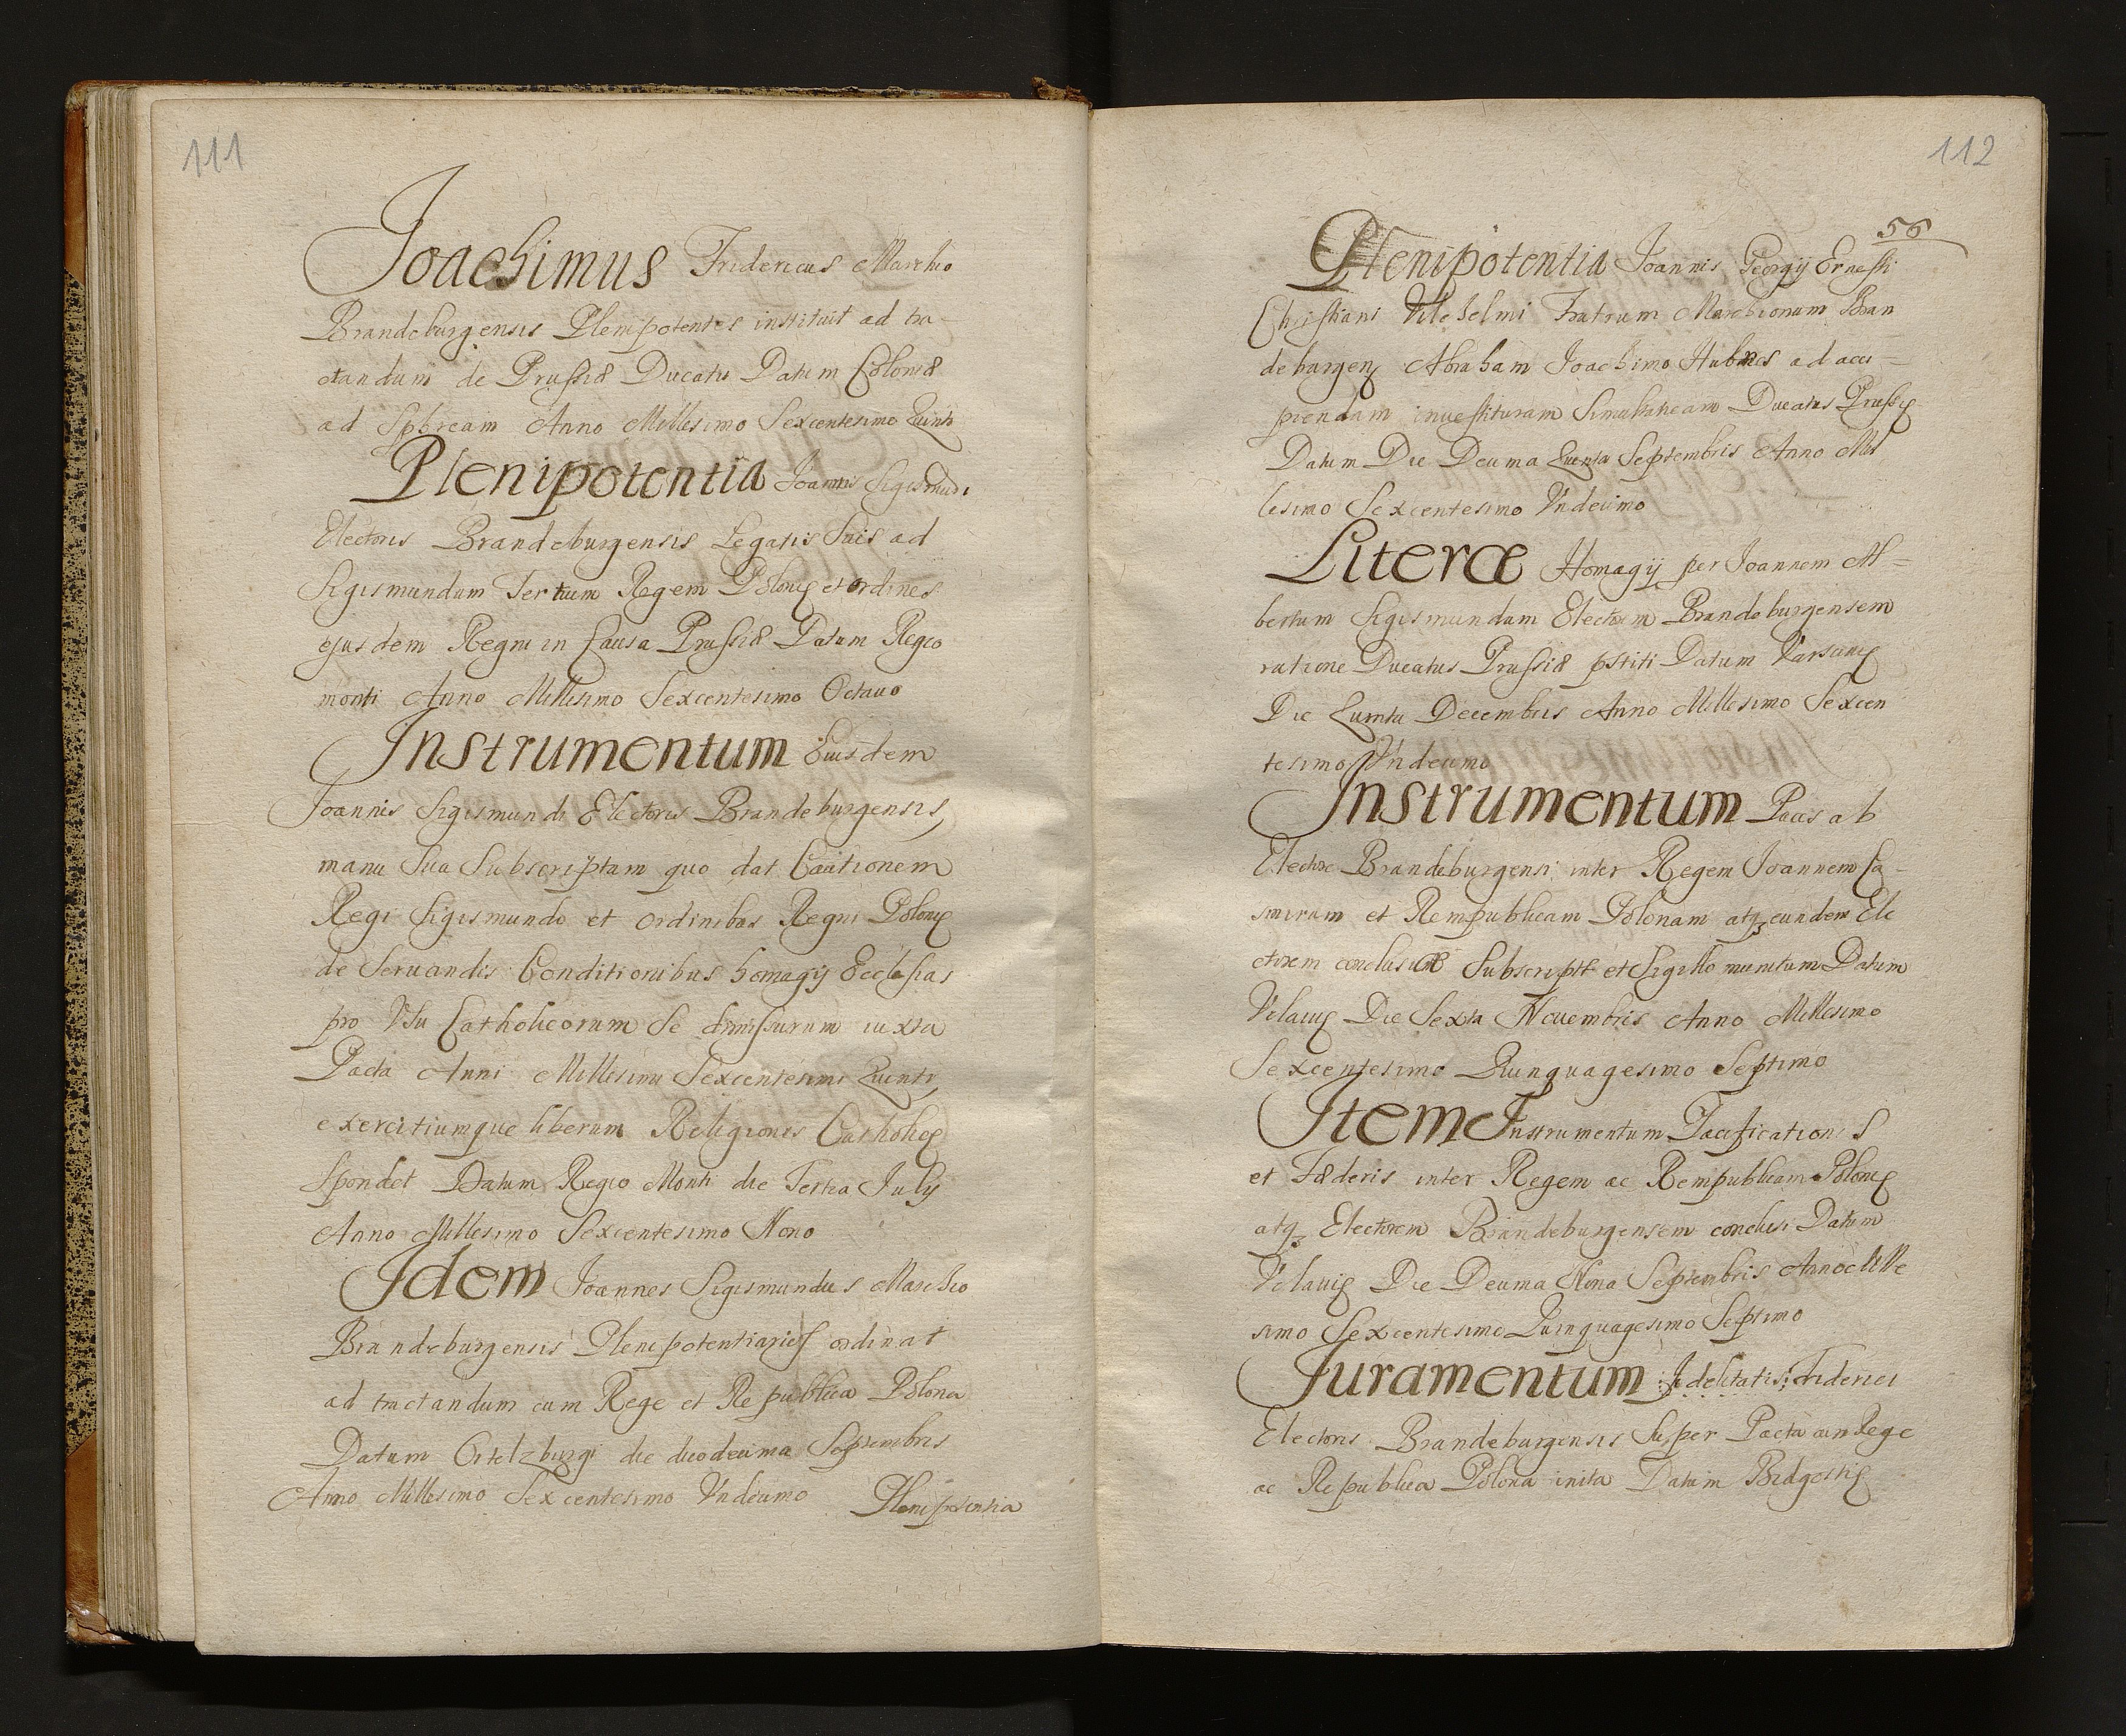 111
Joachimus Fridericus Marchio
Brandeburgensis Plenipotentes instituit ad tra-
ctandum de Prussiæ Ducatu Datum Coloniæ
ad Spbream Anno Millesimo Sexcentesimo Quinto
Plenipotentia Joannis Sigismudi
Electoris Brandeburgensis Legatis Suis ad
Sigismundum Tertium Regem Polonię et ordines
ejusdem Regni in Causa Prussiæ Datum Regio
monti Anno Millesimo Sexcentesimo Octauo
Instrumentum Eiusdem
Joannis Sigismundi Electoris Brandeburgensis,
manu Sua Subscriptam quo dat Cautionem
Regi Sigismundo et ordinibus Regni Polonię
de Seruandis Conditionibus homagij Ecclesias
pro Usu Catholicorum Se dimissurum iuxta
Pacta Anni Millesimi Sexcentesimi Quinti,
exercitiumque liberum Religionis Catholicę
Spondet Datum Regio Monti die Tertia July
Anno Millesimo Sexcentesimo Nono
Idem Joannes Sigismundus Marchio
Brandeburgensis Plenipotentiarios ordinat
ad tractandum cum Rege et Republica Polona
Datum Ortelzburgi die duodecima Septembris
Anno Millesimo Sexcentesimo Undecimo Plenipotentia
112
56
Plenipotentia Joannis Georgij Ernesti
Christiani Vilehelmi Fratrum Marchionum Bran
deburgen Abraham Joachimo Hubnes ad acci-
piendam inuestituram Simultaneam Ducatus Prussię
Datum Die Decima Quinta Septembris Anno Mil
lesimo Sexcentesimo Undecimo
Literæ Homagij per Joannem Al-
bertum Sigismundum Electorem Brandeburgensem
ratione Ducatus Prussiæ pstiti Datum Varsauię
Die Quinta Decembris Anno Millesimo Sexcen
tesimo Undecimo
Instrumentum Pacis ab
Electore Brandeburgensi inter Regem Joannem Ca-
smirum et Rempublicam Polonam atq; eundem Ele
ctorem conclusæ Subscript et Sigillo munitum Datum
Velauię Die Sexta Nouembris Anno Millesimo
Sexcentesimo Quinquagesimo Septimo
Item Instrumentum Pacificationis
et Fæderis inter Regem ac Rempublicam Polonię
atq; Electorem Brandeburgensem conclusi Datum
Velauię Die Decima Nona Septembris Anno Mille
simo Sexcentesimo Quinquagesimo Septimo
Juramentum :Fidelitatis: Friderici
Electoris Brandeburgensis Super Pacta cum Rege
ac Republica Polona inita Datum Bidgostię